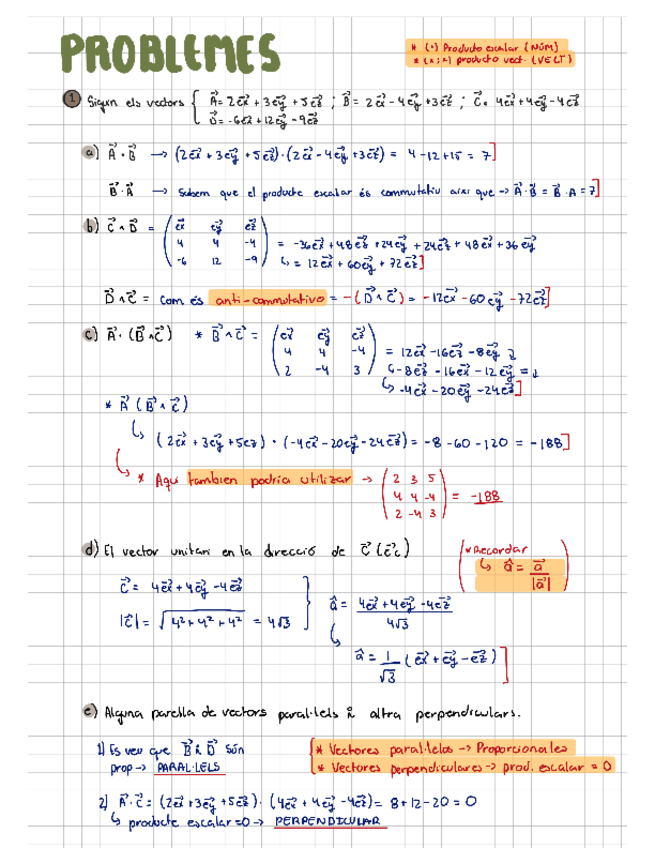 PROBLEMES
* (·) Producto escalar (NÚM)
* (x ; ∧) producto vect. (VECT)
① Siguin els vectors { A⃗ = 2e⃗x + 3e⃗y + 5e⃗z ; B⃗ = 2e⃗x - 4e⃗y + 3e⃗z ; C⃗ = 4e⃗x + 4e⃗y - 4e⃗z
D⃗ = -6e⃗x + 12e⃗y - 9e⃗z
a) A⃗ · B⃗ → (2e⃗x + 3e⃗y + 5e⃗z) · (2e⃗x - 4e⃗y + 3e⃗z) = 4 - 12 + 15 = 7]
B⃗ · A⃗ → Sabem que el producte escalar és commutatiu així que → A⃗ · B⃗ = B⃗ · A = 7]
b) C⃗ ∧ D⃗ = ( e⃗x e⃗y e⃗z
4 4 -4
-6 12 -9 ) = -36e⃗x + 48e⃗z + 24e⃗y + 24e⃗z + 48e⃗x + 36e⃗y
↳ = 12e⃗x + 60e⃗y + 72e⃗z]
D⃗ ∧ C⃗ = Com és anti-commutativo = -(D⃗ ∧ C⃗) = -12e⃗x - 60e⃗y - 72e⃗z]
c) A⃗ · (B⃗ ∧ C⃗) * B⃗ ∧ C⃗ = ( e⃗x e⃗y e⃗z
4 4 -4
2 -4 3 ) = 12e⃗x - 16e⃗z - 8e⃗y
↳ -8e⃗z - 16e⃗x - 12e⃗y =
↳ -4e⃗x - 20e⃗y - 24e⃗z]
* A⃗ (B⃗ ∧ C⃗)
↳ (2e⃗x + 3e⃗y + 5ez) · (-4e⃗x - 20e⃗y - 24e⃗z) = -8 - 60 - 120 = -188]
↳ * Aqui tambien podria utilizar → ( 2 3 5
4 4 -4
2 -4 3 ) = -188
d) El vector unitari en la direcció de C⃗ (e⃗c)
* Recordar
↳ â = a⃗ / |a⃗|
C⃗ = 4e⃗x + 4e⃗y - 4e⃗z
|C⃗| = √4² + 4² + 4² = 4√3
â = 4e⃗x + 4e⃗y - 4e⃗z / 4√3
↳ â = 1/√3 (e⃗x + e⃗y - e⃗z)]
e) Alguna parella de vectors paral·lels i altra perpendiculars.
1) Es veu que B⃗ i D⃗ són
prop → PARAL·LELS
* Vectores paral·lelos → Proporcionales
* Vectores perpendiculares → prod. escalar = 0
2) A⃗ · C⃗ = (2e⃗x + 3e⃗y + 5e⃗z) · (4e⃗x + 4e⃗y - 4e⃗z) = 8 + 12 - 20 = 0
↳ producte escalar = 0 → PERPENDICULAR